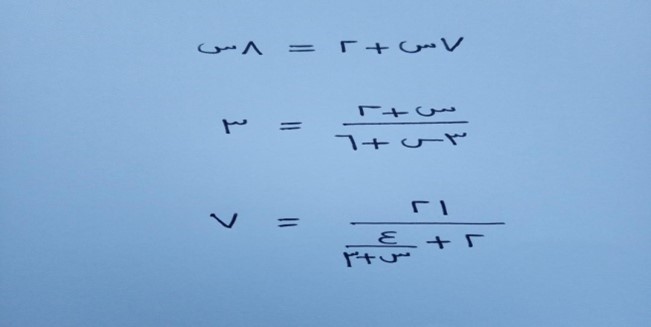 ٧س + ٢ = ٨س
س + ٢
٣س + ٦ = ٣
٢١
٢ + ٤ = ٧
س + ٣